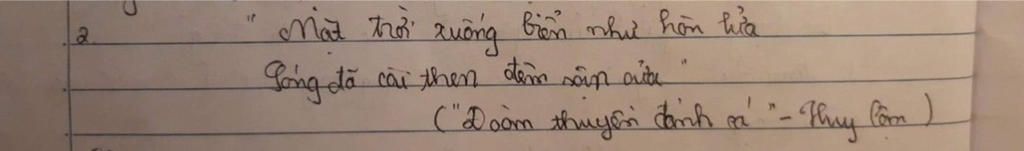 2. " Mặt trời xuống biển như hòn lửa
Sóng đã cài then đêm sập cửa "
("Đoàn thuyền đánh cá" - Huy Cận)